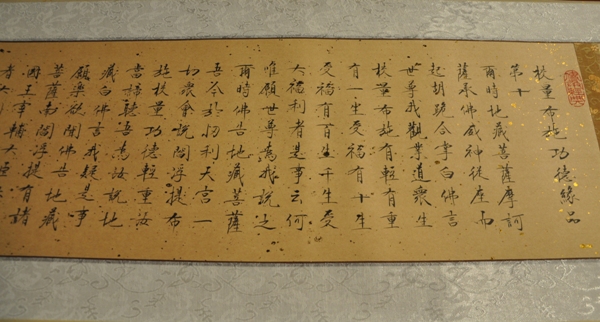 校量布施功德緣品
第十
爾時地藏菩薩摩訶
薩承佛威神從座而
起胡跪合掌白佛言
世尊我觀業道衆生
校量布施有輕有重
有一生受福有十生
受福有百生千生受
大福利者是事云何
唯願世尊為我說之
爾時佛告地藏菩薩
吾今於忉利天宮一
切衆會說閻浮提布
施校量功德輕重汝
當諦聽吾為汝說地
藏白佛言我疑是事
願樂欲聞佛告地藏
菩薩南閻浮提有諸
國王宰輔大臣